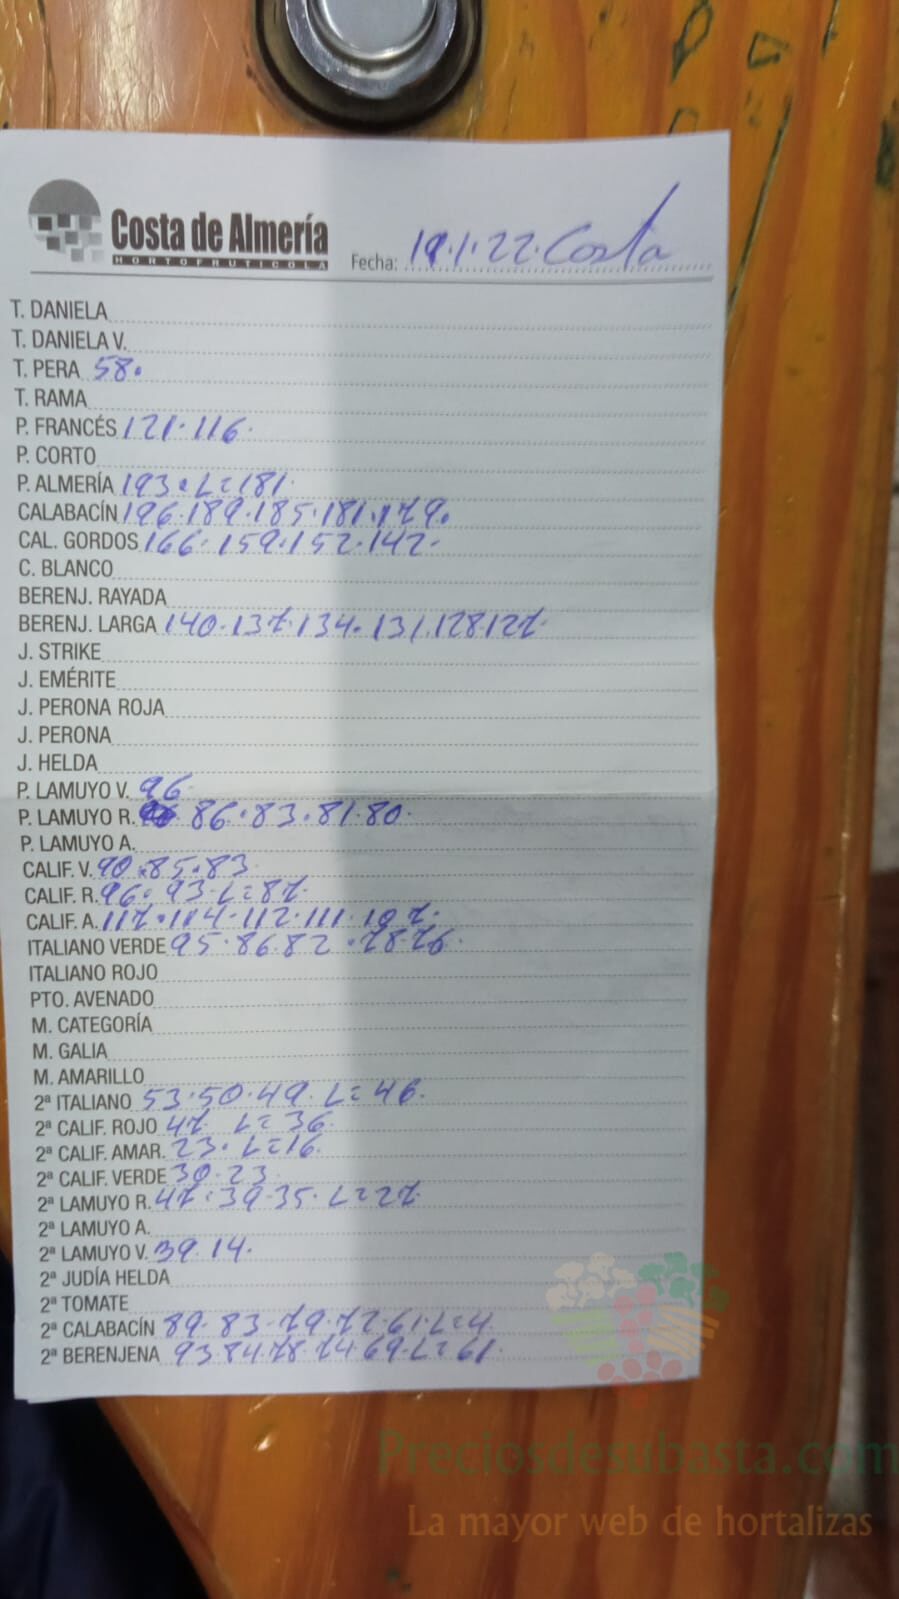 Costa de Almería
HORTOFRUTICOLA
Fecha: 19.1.22. Costa
T. DANIELA
T. DANIELA V.
T. PERA 58.
T. RAMA
P. FRANCÉS 121.116.
P. CORTO
P. ALMERÍA 193. L=181.
CALABACÍN 196.189.185.181.179.
CAL. GORDOS 166.159.152.142.
C. BLANCO
BERENJ. RAYADA
BERENJ. LARGA 140.137.134.131.128.127.
J. STRIKE
J. EMÉRITE
J. PERONA ROJA
J. PERONA
J. HELDA
P. LAMUYO V. 96
P. LAMUYO R. 86.83.81.80.
P. LAMUYO A.
CALIF. V. 90.85.83
CALIF. R. 96. 93. L=87.
CALIF. A. 117.114.112.111.107.
ITALIANO VERDE 95.86.82.78.76.
ITALIANO ROJO
PTO. AVENADO
M. CATEGORÍA
M. GALIA
M. AMARILLO
2ª ITALIANO 53.50.49. L=46.
2ª CALIF. ROJO 47 L=36.
2ª CALIF. AMAR. 23. L=16.
2ª CALIF. VERDE 30.23
2ª LAMUYO R. 47.39.35. L=27
2ª LAMUYO A.
2ª LAMUYO V. 39.14.
2ª JUDÍA HELDA
2ª TOMATE
2ª CALABACÍN 89.83.79.72.61.L=4.
2ª BERENJENA 93.84.78.74.69.L=61.
Preciosdesubasta.com
La mayor web de hortalizas